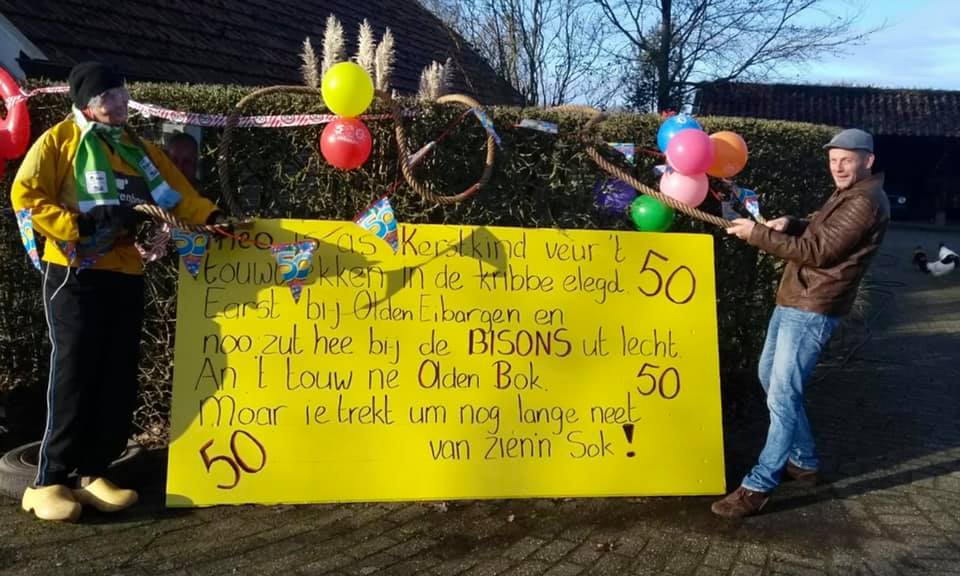 Theo is as Kerstkind veur 't
touwtrekken in de kribbe elegd. 50
Earst bij Olden Eibargen en
noo zut hee bij de BISONS ut lecht.
An 't touw ne Olden Bok. 50
Moar ie trekt um nog lange neet
50 van zien'n Sok!
50
50
50
50